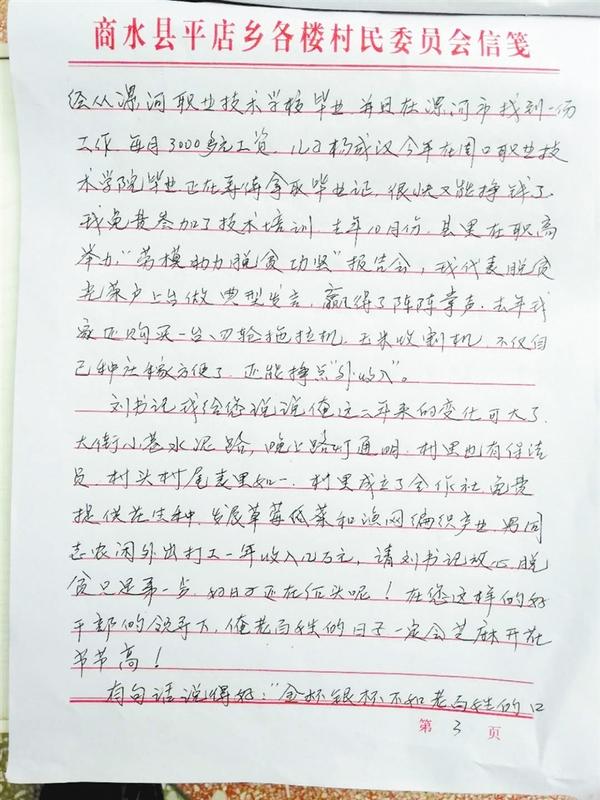 商水县平店乡各楼村民委员会信笺
经从漯河职业技术学校毕业并且在漯河市找到一份
工作每月3000多元工资.儿子杨成汉今年在周口职业技
术学院毕业正在等待拿取毕业证,很快又能挣钱了.
我免费参加了技术培训.去年10月份,县里在职高
举办"劳模助力脱贫功坚"报告会,我代表脱贫
光荣户上台做典型发言,赢得了阵阵掌声.去年我
家还购买一台四轮拖拉机,玉米收割机,不仅自
己种庄稼方便了.还能挣点"外收入"。
刘书记我给您说说俺这二年来的变化可大了.
大街小巷水泥路,晚上路灯通明.村里也有保洁
员,村头村尾表里如一.村里成立了合作社,免费
提供花生种.发展草莓瓜菜和渔网编织产业.男同
志农闲外出打工一年收入12万元,请刘书记放心,脱
贫只是第一步,好日子还在后头呢!在您这样的好
干部的领导下,俺老百姓的日子一定会芝麻开花
节节高!
有句话说得好:"金杯银杯不如老百姓的口
第3页